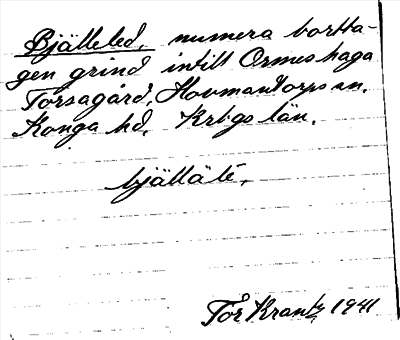 Bjälleled, numera bortta-
gen grind intill Ormeshaga
Torsagård, Hovmantorps sn.
Konga hd. Krbgs län.
bjälläle,
Tor Krantz 1941